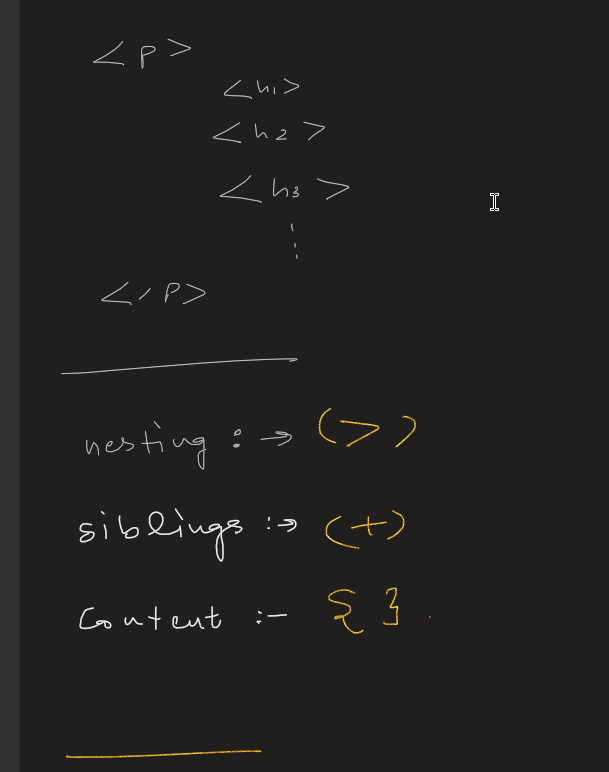 <p>
<h1>
<h2>
<h3>
</p>
nesting :→ (>)
siblings :→ (+)
Content :- { }